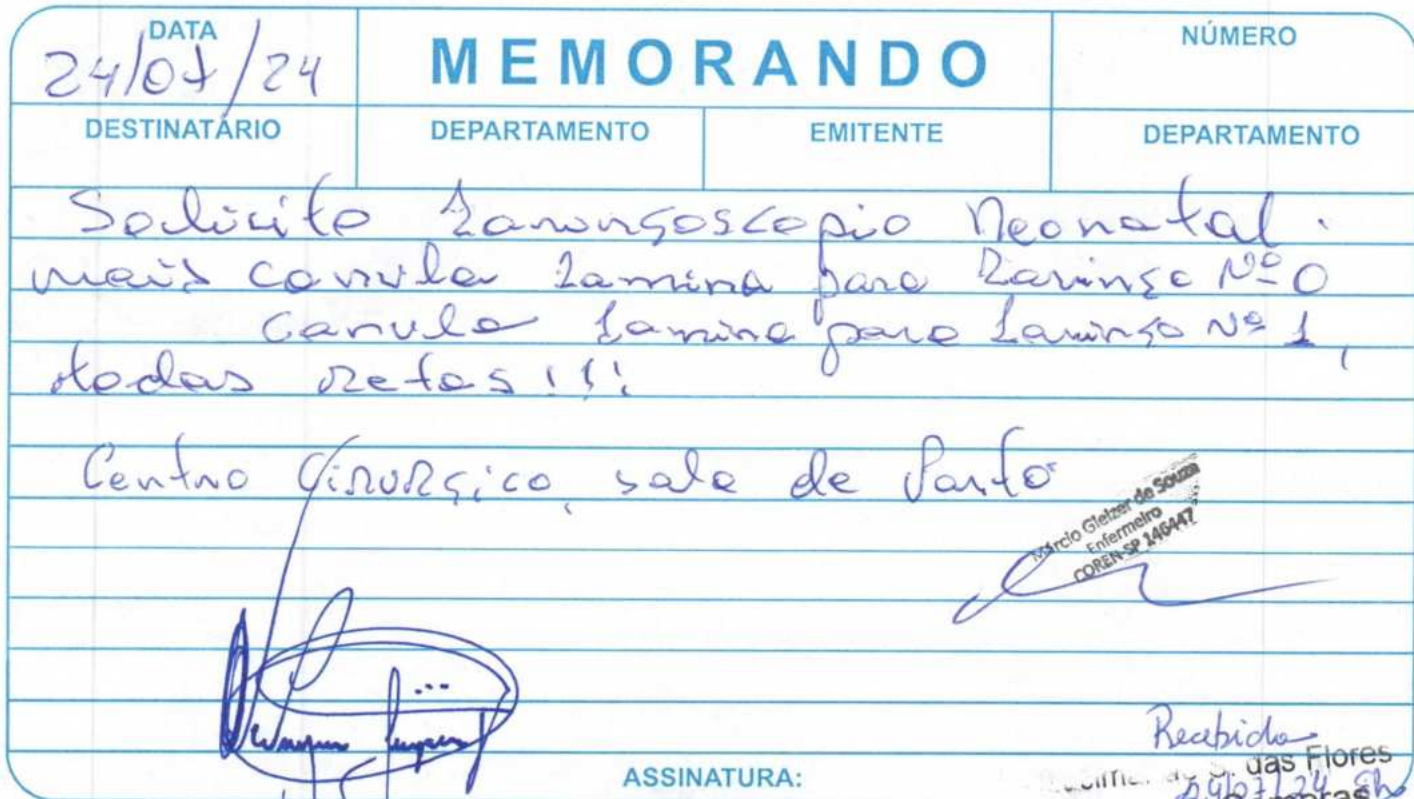 DATA
24/07/24
MEMORANDO
NÚMERO
DESTINATÁRIO
DEPARTAMENTO
EMITENTE
DEPARTAMENTO
Solicito Laringoscopio Neonatal.
mais canula Lamina para Laringo Nº 0
Canula Lamina para Laringo Nº 1,
todas Retas!!!
Centro Cirurgico, sala de Parto
Márcio Gleizer de Souza
Enfermeiro
COREN-SP 146447
Recebido
das Flores
24/07/24
ASSINATURA: